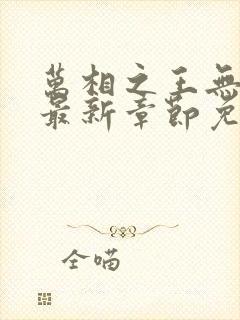 萬相之王無
最新章節免
全喵